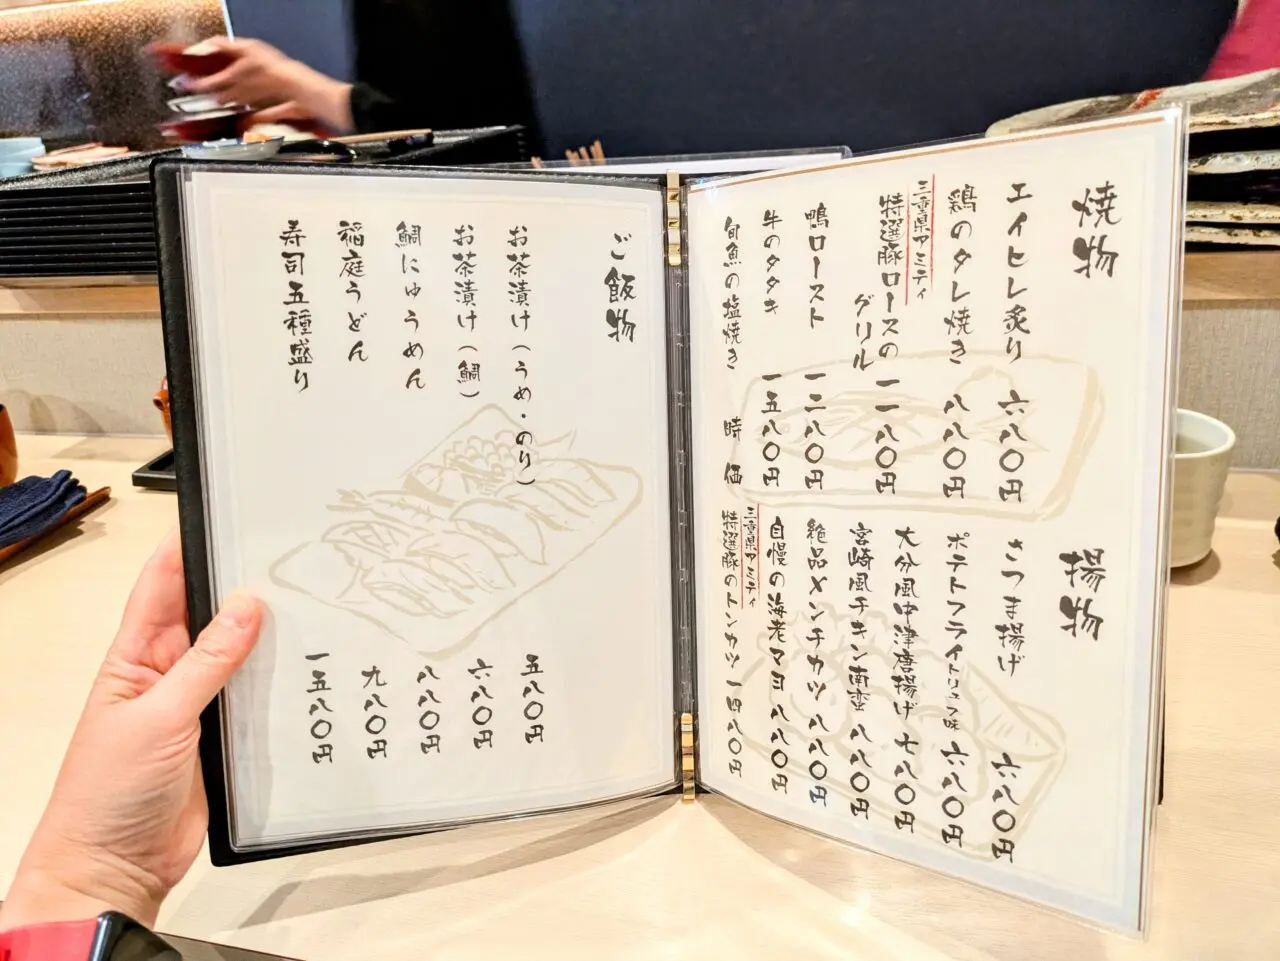 焼物
エイヒレ炙り 六八〇円
鶏のタレ焼き 八八〇円
三重県アミティ
特選豚ロースの
グリル 一一八〇円
鴨ロースト 一二八〇円
牛のタタキ 一五八〇円
旬魚の塩焼き 時価
揚物
さつま揚げ 六八〇円
ポテトフライトリュフ味 六八〇円
大分風中津唐揚げ 七八〇円
宮崎風チキン南蛮 八八〇円
絶品メンチカツ 八八〇円
自慢の海老マヨ 八八〇円
三重県アミティ
特選豚のトンカツ 一四八〇円
ご飯物
お茶漬け(うめ・のり) 五八〇円
お茶漬け(鯛) 六八〇円
鯛にゅうめん 八八〇円
稲庭うどん 九八〇円
寿司五種盛り 一五八〇円